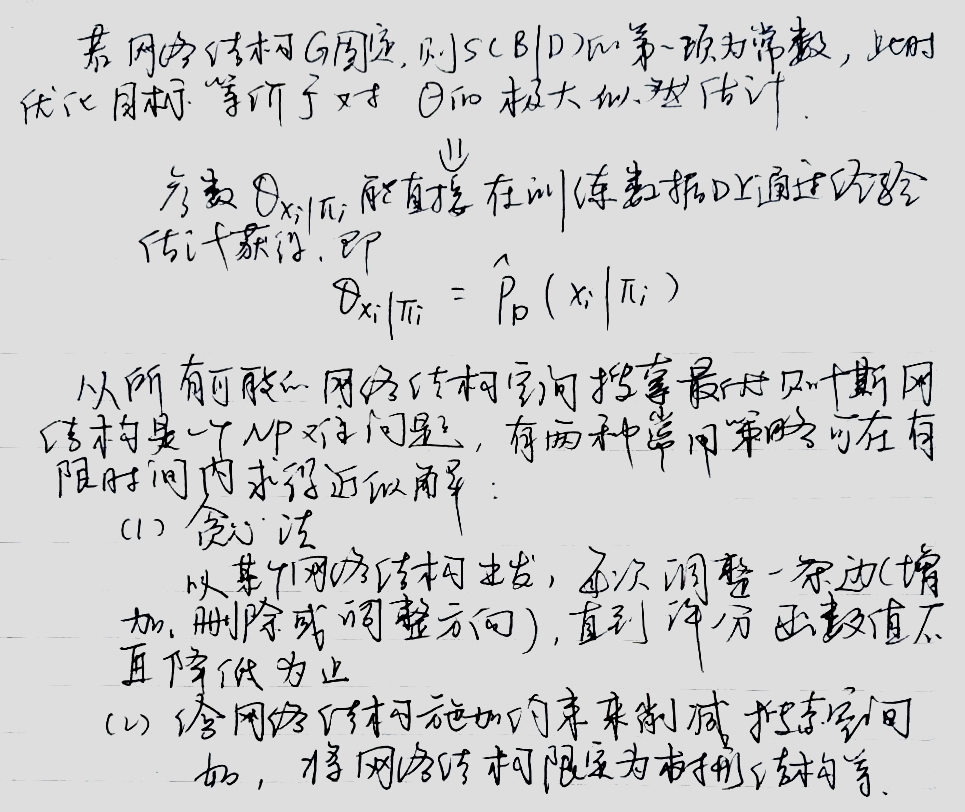 若网络结构G固定,则S(B|D)的第一项为常数,此时
优化目标等价于对 Θ的极大似然估计.
⇓
参数 θxi|πi 能直接在训练数据D上通过经验
估计获得,即
θxi|πi = P̂D(xi|πi)
从所有可能的网络结构空间搜索最优贝叶斯网
结构是一个NP难问题,有两种常用策略可在有
限时间内求得近似解:
(1) 贪心法
以某个网络结构出发,每次调整一条边(增
加、删除或调整方向),直到评分函数值不
再降低为止
(2) 给网络结构施加约束来削减搜索空间
如,将网络结构限定为树形结构等.